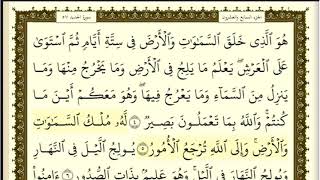 الجزء السابع والعشرون
سورة الحديد
هُوَ ٱلَّذِى خَلَقَ ٱلسَّمَٰوَٰتِ وَٱلْأَرْضَ فِى سِتَّةِ أَيَّامٍ ثُمَّ ٱسْتَوَىٰ
عَلَى ٱلْعَرْشِ يَعْلَمُ مَا يَلِجُ فِى ٱلْأَرْضِ وَمَا يَخْرُجُ مِنْهَا وَمَا
يَنزِلُ مِنَ ٱلسَّمَآءِ وَمَا يَعْرُجُ فِيهَا وَهُوَ مَعَكُمْ أَيْنَ مَا
كُنتُمْ وَٱللَّهُ بِمَا تَعْمَلُونَ بَصِيرٌ ٤ لَّهُۥ مُلْكُ ٱلسَّمَٰوَٰتِ
وَٱلْأَرْضِ وَإِلَى ٱللَّهِ تُرْجَعُ ٱلْأُمُورُ ٥ يُولِجُ ٱلَّيْلَ فِى ٱلنَّهَارِ
وَيُولِجُ ٱلنَّهَارَ فِى ٱلَّيْلِ وَهُوَ عَلِيمٌۢ بِذَاتِ ٱلصُّدُورِ ٦ ءَامِنُوا۟